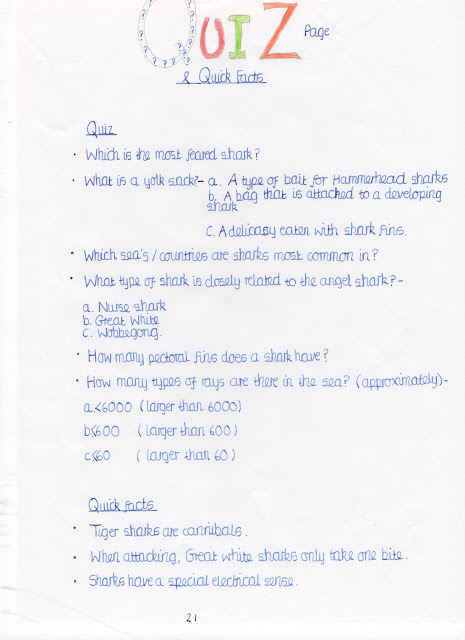 QUIZ Page
& Quick Facts
Quiz
· Which is the most feared shark?
· What is a yolk sack?- a. A type of bait for Hammerhead sharks
b. A bag that is attached to a developing
shark
C. A delicasy eaten with shark fins.
· Which sea's / countries are sharks most common in?
· What type of shark is closely related to the angel shark? -
a. Nurse shark
b. Great White
c. Wobbegong.
· How many pectoral fins does a shark have?
· How many types of rays are there in the sea? (approximately)-
a.<6000 (larger than 6000)
b<600 (larger than 600)
c<60 (larger than 60)
Quick facts
· Tiger sharks are cannibals.
· When attacking, Great white sharks only take one bite.
· Sharks have a special electrical sense.
21